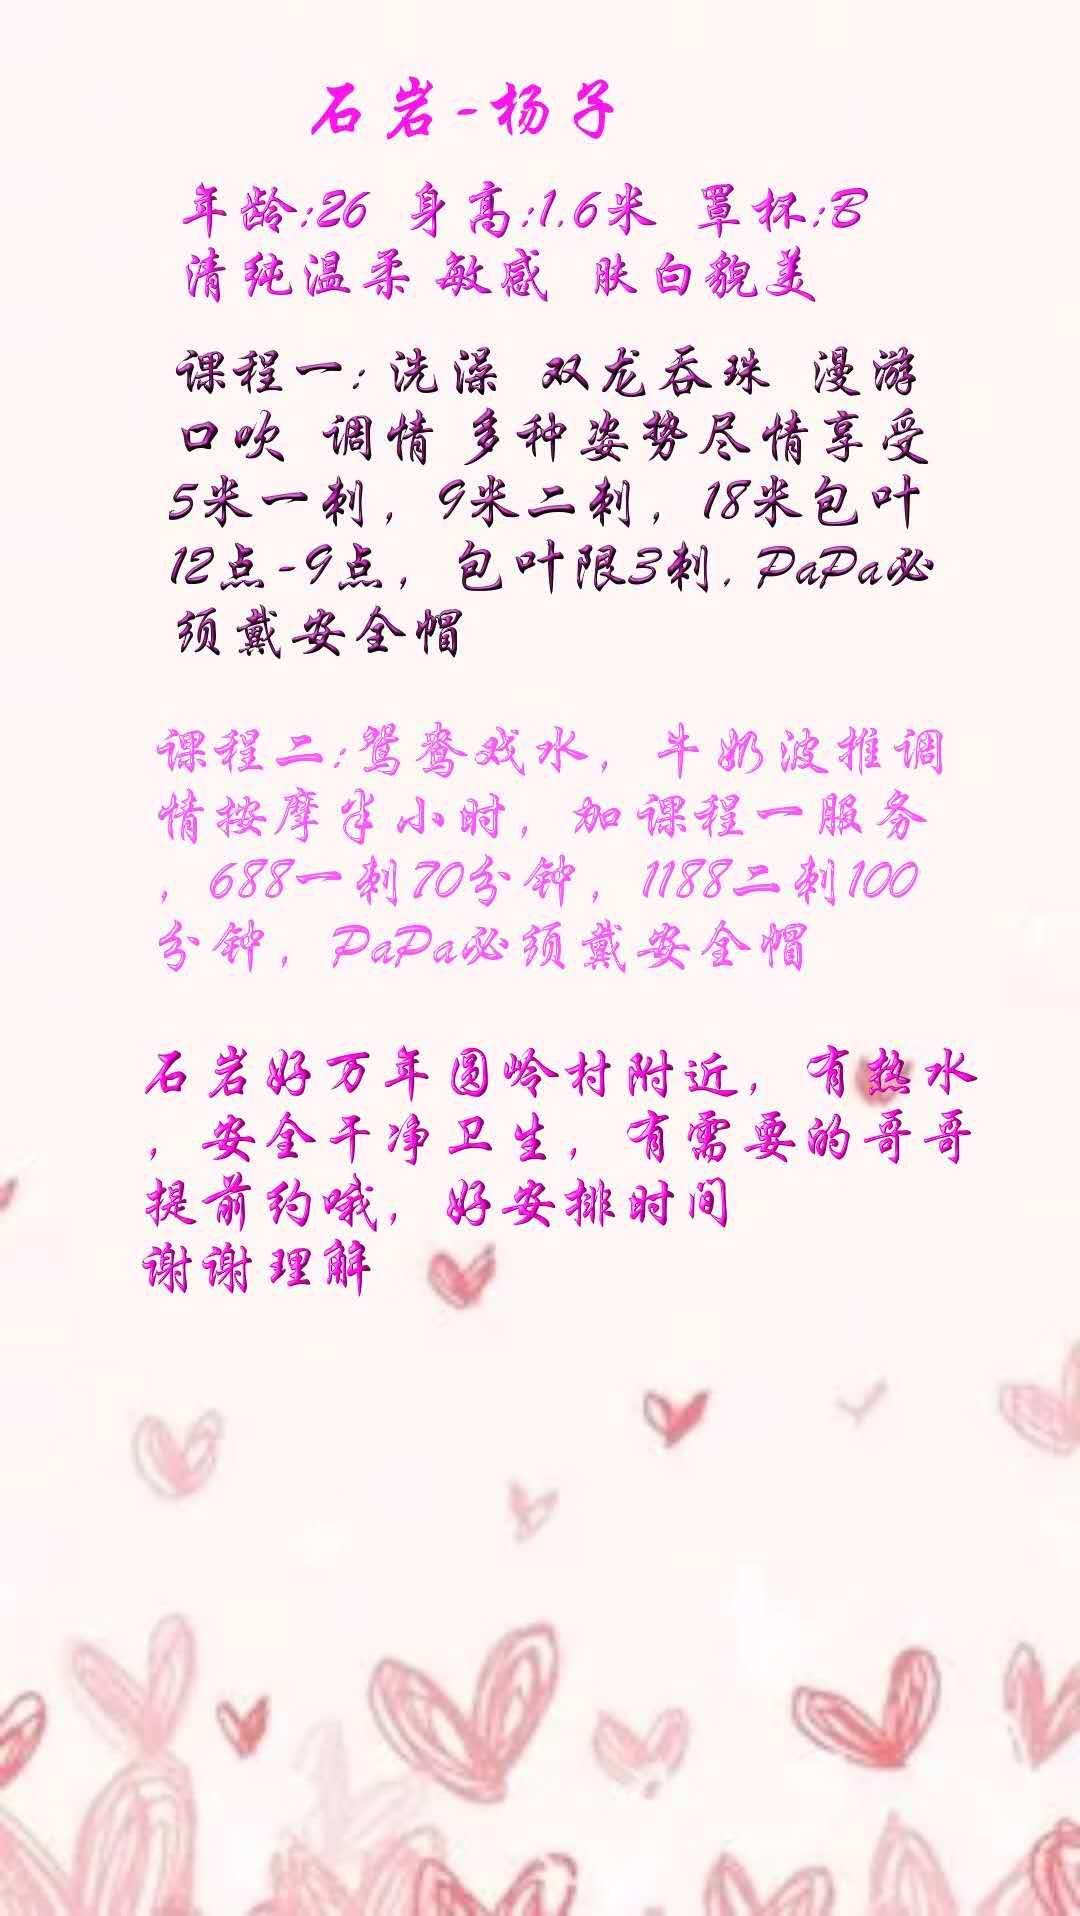 石岩-杨子
年龄:26 身高:1.6米 罩杯:B
清纯温柔 敏感 肤白貌美
课程一: 洗澡 双龙吞珠 漫游
口吹 调情 多种姿势尽情享受
5米一刺，9米二刺，18米包叶
12点-9点，包叶限3刺. PaPa必
须戴安全帽
课程二:鸳鸯戏水，牛奶波推调
情按摩半小时，加课程一服务
，688一刺70分钟，1188二刺100
分钟，PaPa必须戴安全帽
石岩好万年圆岭村附近，有热水
，安全干净卫生，有需要的哥哥
提前约哦，好安排时间
谢谢理解